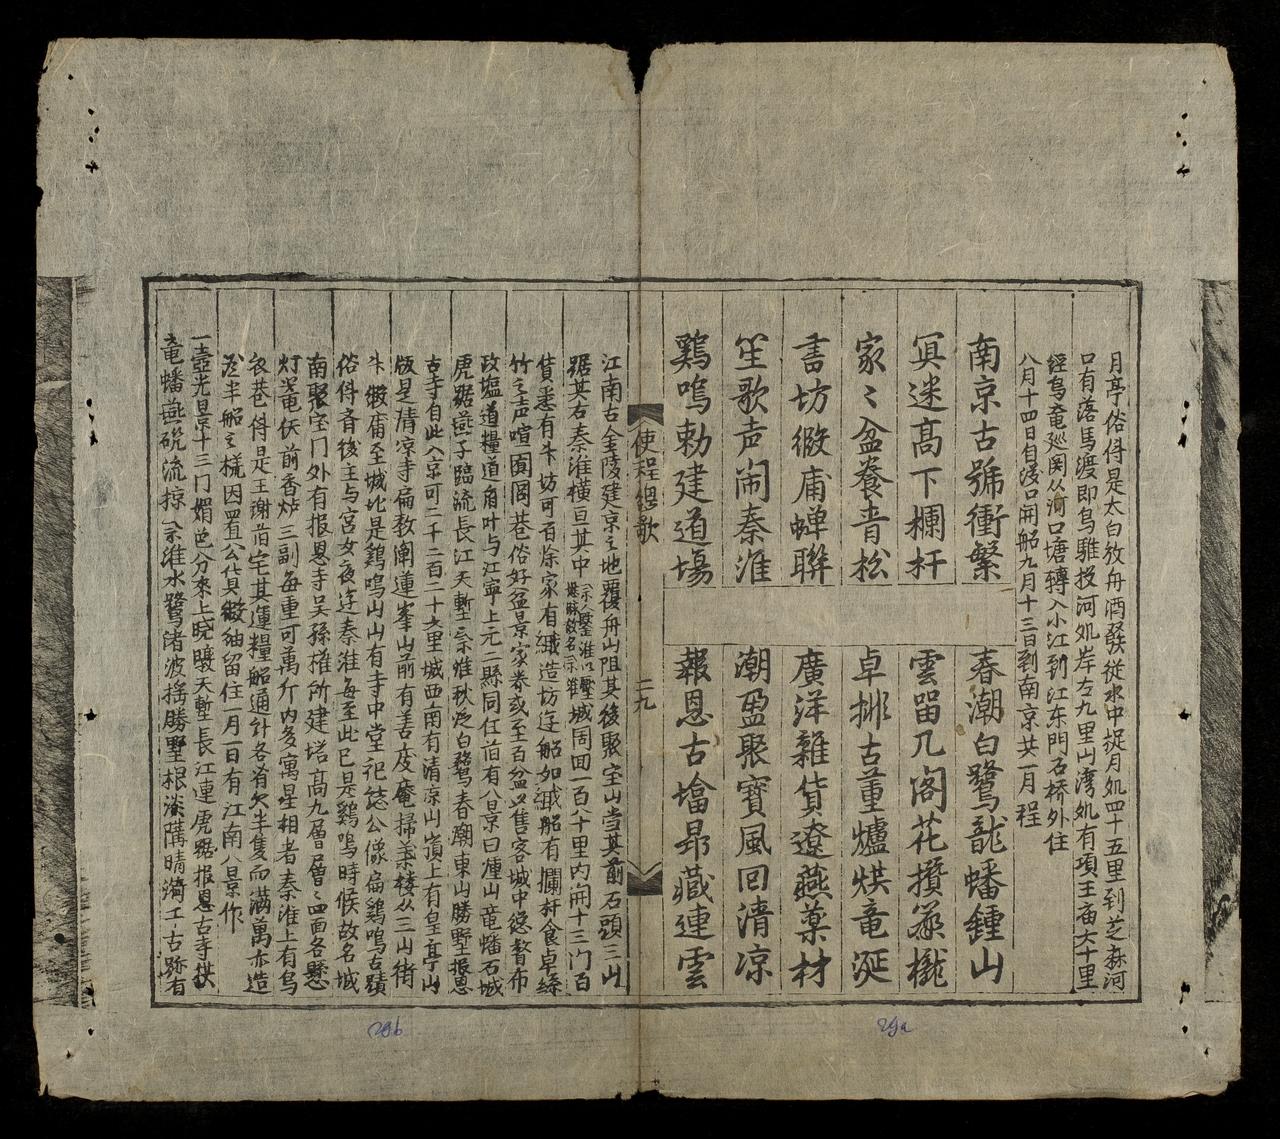 月亭俗傳是太白放舟酒發從水中捉月処四十五里到芝麻河
口有落馬渡即烏騅投河処岸左九里山湾処有項王庙六十里
經烏竜廵関从河口塘轉入小江到江东門石桥外住
八月十四日自漢口開船九月十三日到南京共一月程
南京古號衝繁 春潮白鷺龍蟠鍾山
冥迷髙下欄杆 雲畄几阁花攢
家〻盆養青松 卓排古董爐烘竜涎
書坊緞庯蝉聯 廣洋雜貨遼燕薬材
笙歌声闹秦淮 潮盈聚寶風回清凉
鷄鳴勅建道塲 報恩古墖昻藏連雲
使程總歌 二九
江南古金陵建京之地覆舟山阻其後聚宝山当其前石頭三山
踞其右秦淮横亘其中 城周回一百八十里内開十三门百
貨悉有半坊可百餘家有織造坊造船如城船有攔杆食卓絲
竹之声喧闐閭巷俗好盆景家养或至百盆以售客城中总督布
政塩道糧道角叶与江寧上元二縣同任前有八景曰鍾山竜蟠石城
虎踞燕子臨流長江天塹秦淮秋泛白鷺春潮東山勝墅报恩
古寺自此入京可二千二百二十六里城西南有清凉山嶺上有皇亭山
版是清凉寺扁敕 蓮峯山前有善庆庵掃葉楼从三山街
牛緞庯至城北是鷄鳴山山有寺中堂祀誌公像扁鷄鳴古蹟
俗傳齐後主与宮女夜逰秦淮每至此已是鷄鳴時候故名城
南聚宝门外有报恩寺吴孫權所建塔高九層層〻四面各懸
灯篭佚前香炉三副每重可萬斤内多寓星相者秦淮上有烏
衣巷俗是王謝前宅其運糧船通計各有欠半隻而满萬亦造
半船之様因置公貸緞紬留住一月一日有江南八景作
一壺光景十三门媚色分來上晓暾天塹長江連虎踞报恩古寺拱
竜蟠燕硯流掠秦淮水鷺渚波揺勝墅根 晴漪工古跡有
29b
29a